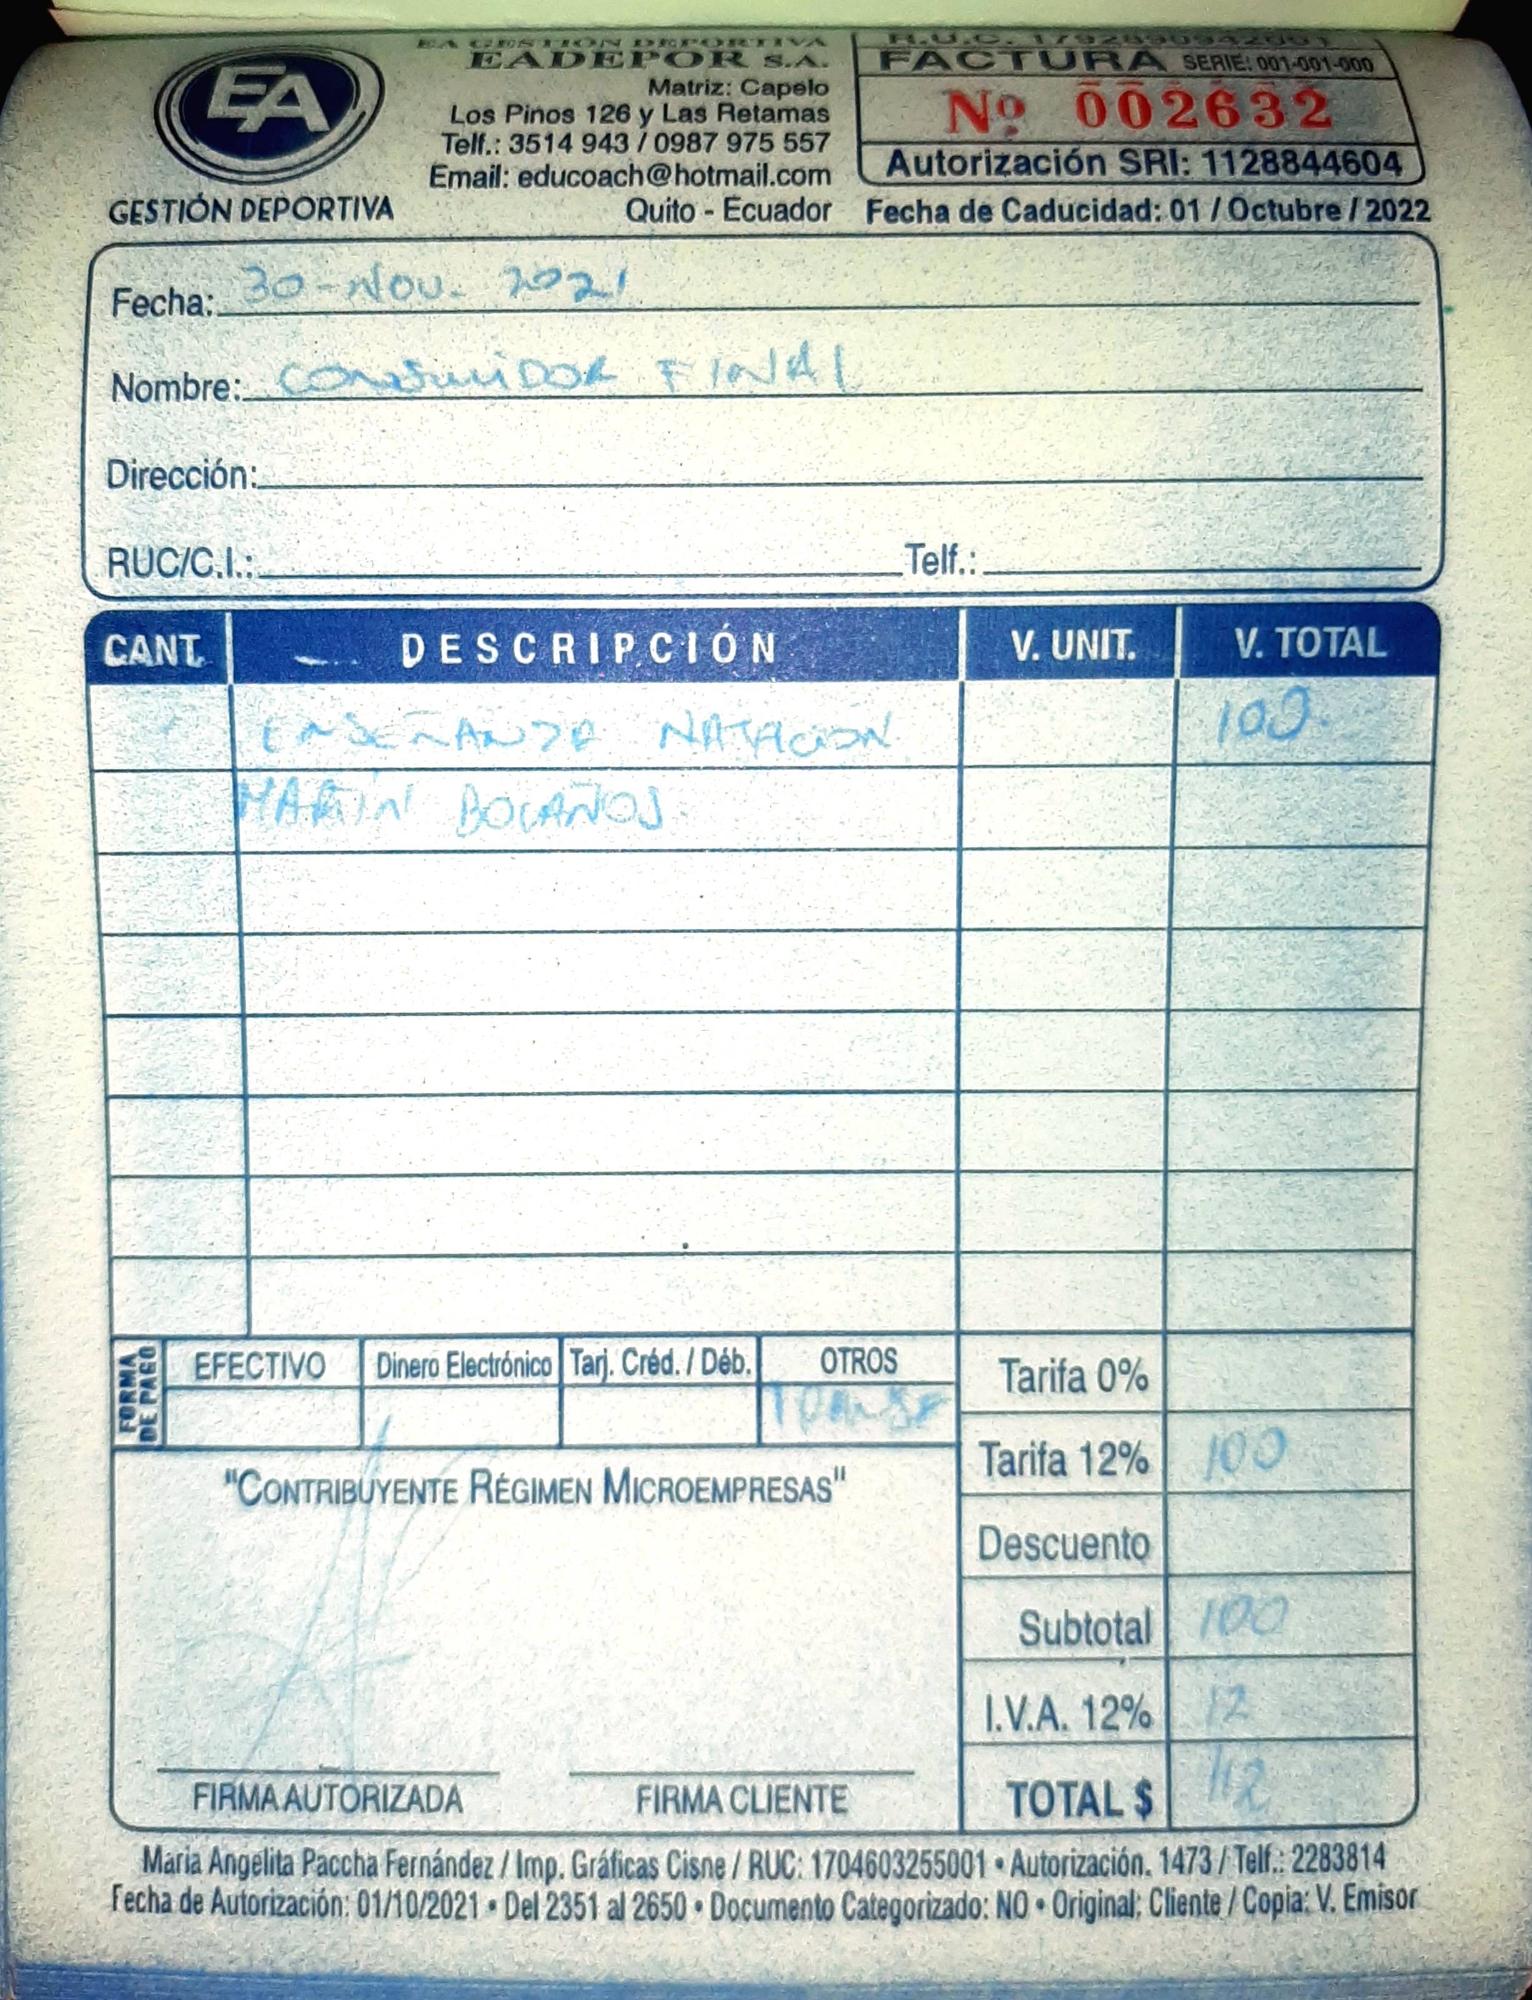 EA GESTIÓN DEPORTIVA
EADEPOR S.A.
Matriz: Capelo
Los Pinos 126 y Las Retamas
Telf.: 3514 943 / 0987 975 557
Email: educoach@hotmail.com
Quito - Ecuador
EA
GESTIÓN DEPORTIVA
R.U.C. 1792890942001
FACTURA SERIE: 001-001-000
Nº 002632
Autorización SRI: 1128844604
Fecha de Caducidad: 01 / Octubre / 2022
Fecha: 30-Nov. 2021
Nombre: CONSUMIDOR FINAL
Dirección:
RUC/C.I.: Telf.:
CANT. DESCRIPCIÓN V. UNIT. V. TOTAL
ENSEÑANZA NATACIÓN 100.
MARTÍN BOLAÑOS
FORMA DE PAGO EFECTIVO Dinero Electrónico Tarj. Créd. / Déb. OTROS
Tarifa 0%
Tarifa 12% 100
"CONTRIBUYENTE RÉGIMEN MICROEMPRESAS"
Descuento
Subtotal 100
I.V.A. 12% 12
TOTAL $ 112
FIRMA AUTORIZADA FIRMA CLIENTE
Maria Angelita Paccha Fernández / Imp. Gráficas Cisne / RUC: 1704603255001 • Autorización. 1473 / Telf.: 2283814
Fecha de Autorización: 01/10/2021 • Del 2351 al 2650 • Documento Categorizado: NO • Original: Cliente / Copia: V. Emisor